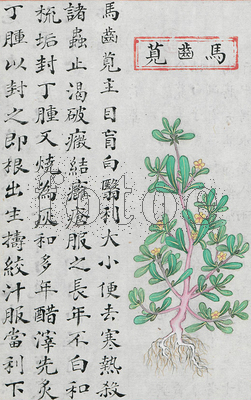 馬齒莧
馬齒莧主目盲白翳利大小便去寒熱殺
諸蟲止渴破癥結癰瘡服之長年不白和
梳垢封丁腫又燒為灰和多年醋滓先炙
丁腫以封之即根出生擣絞汁服當利下